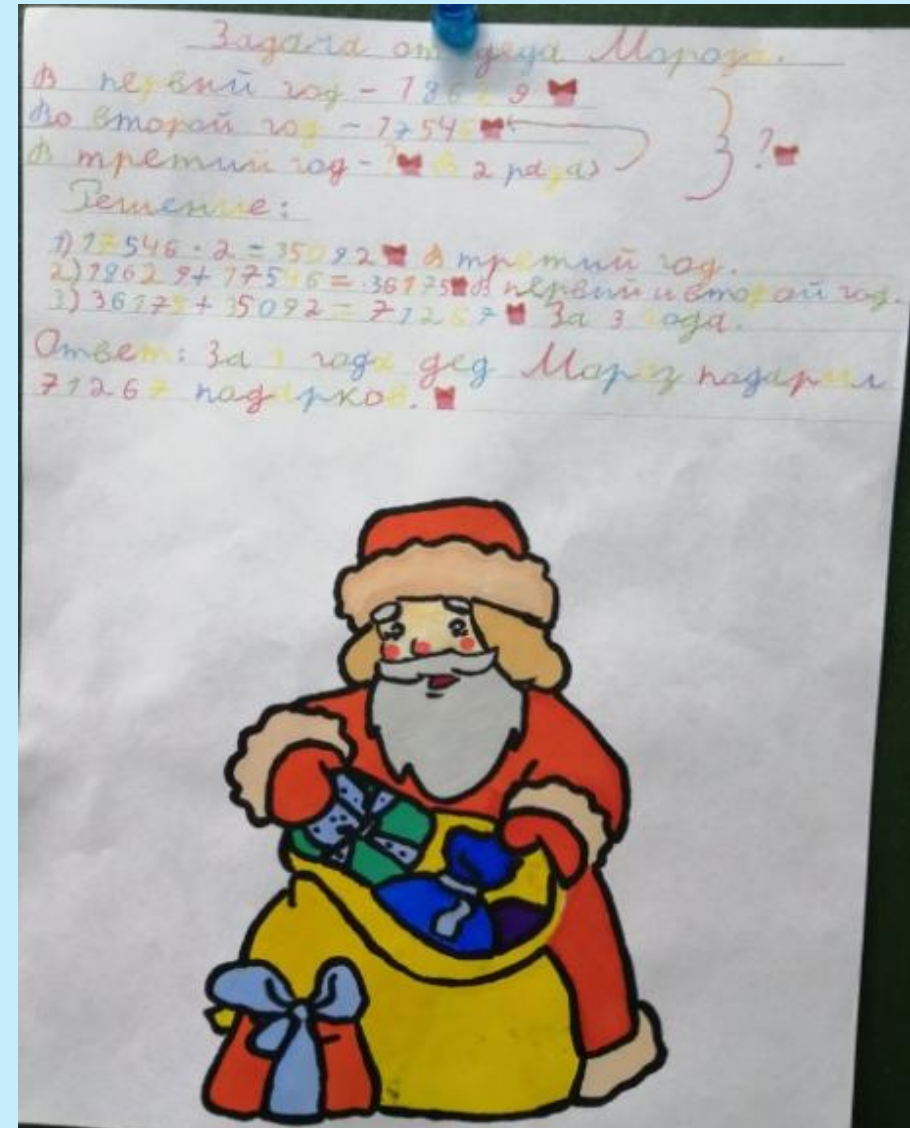 Задача от деда Мороза.
В первый год - 18629
Во второй год - 17546
В третий год - ? в 2 раза >
} ?
Решение:
1) 17546 · 2 = 35092 В третий год.
2) 18629 + 17546 = 36175 В первый и второй год.
3) 36175 + 35092 = 71267 За 3 года.
Ответ: За 3 года дед Мороз подарил
71267 подарков.